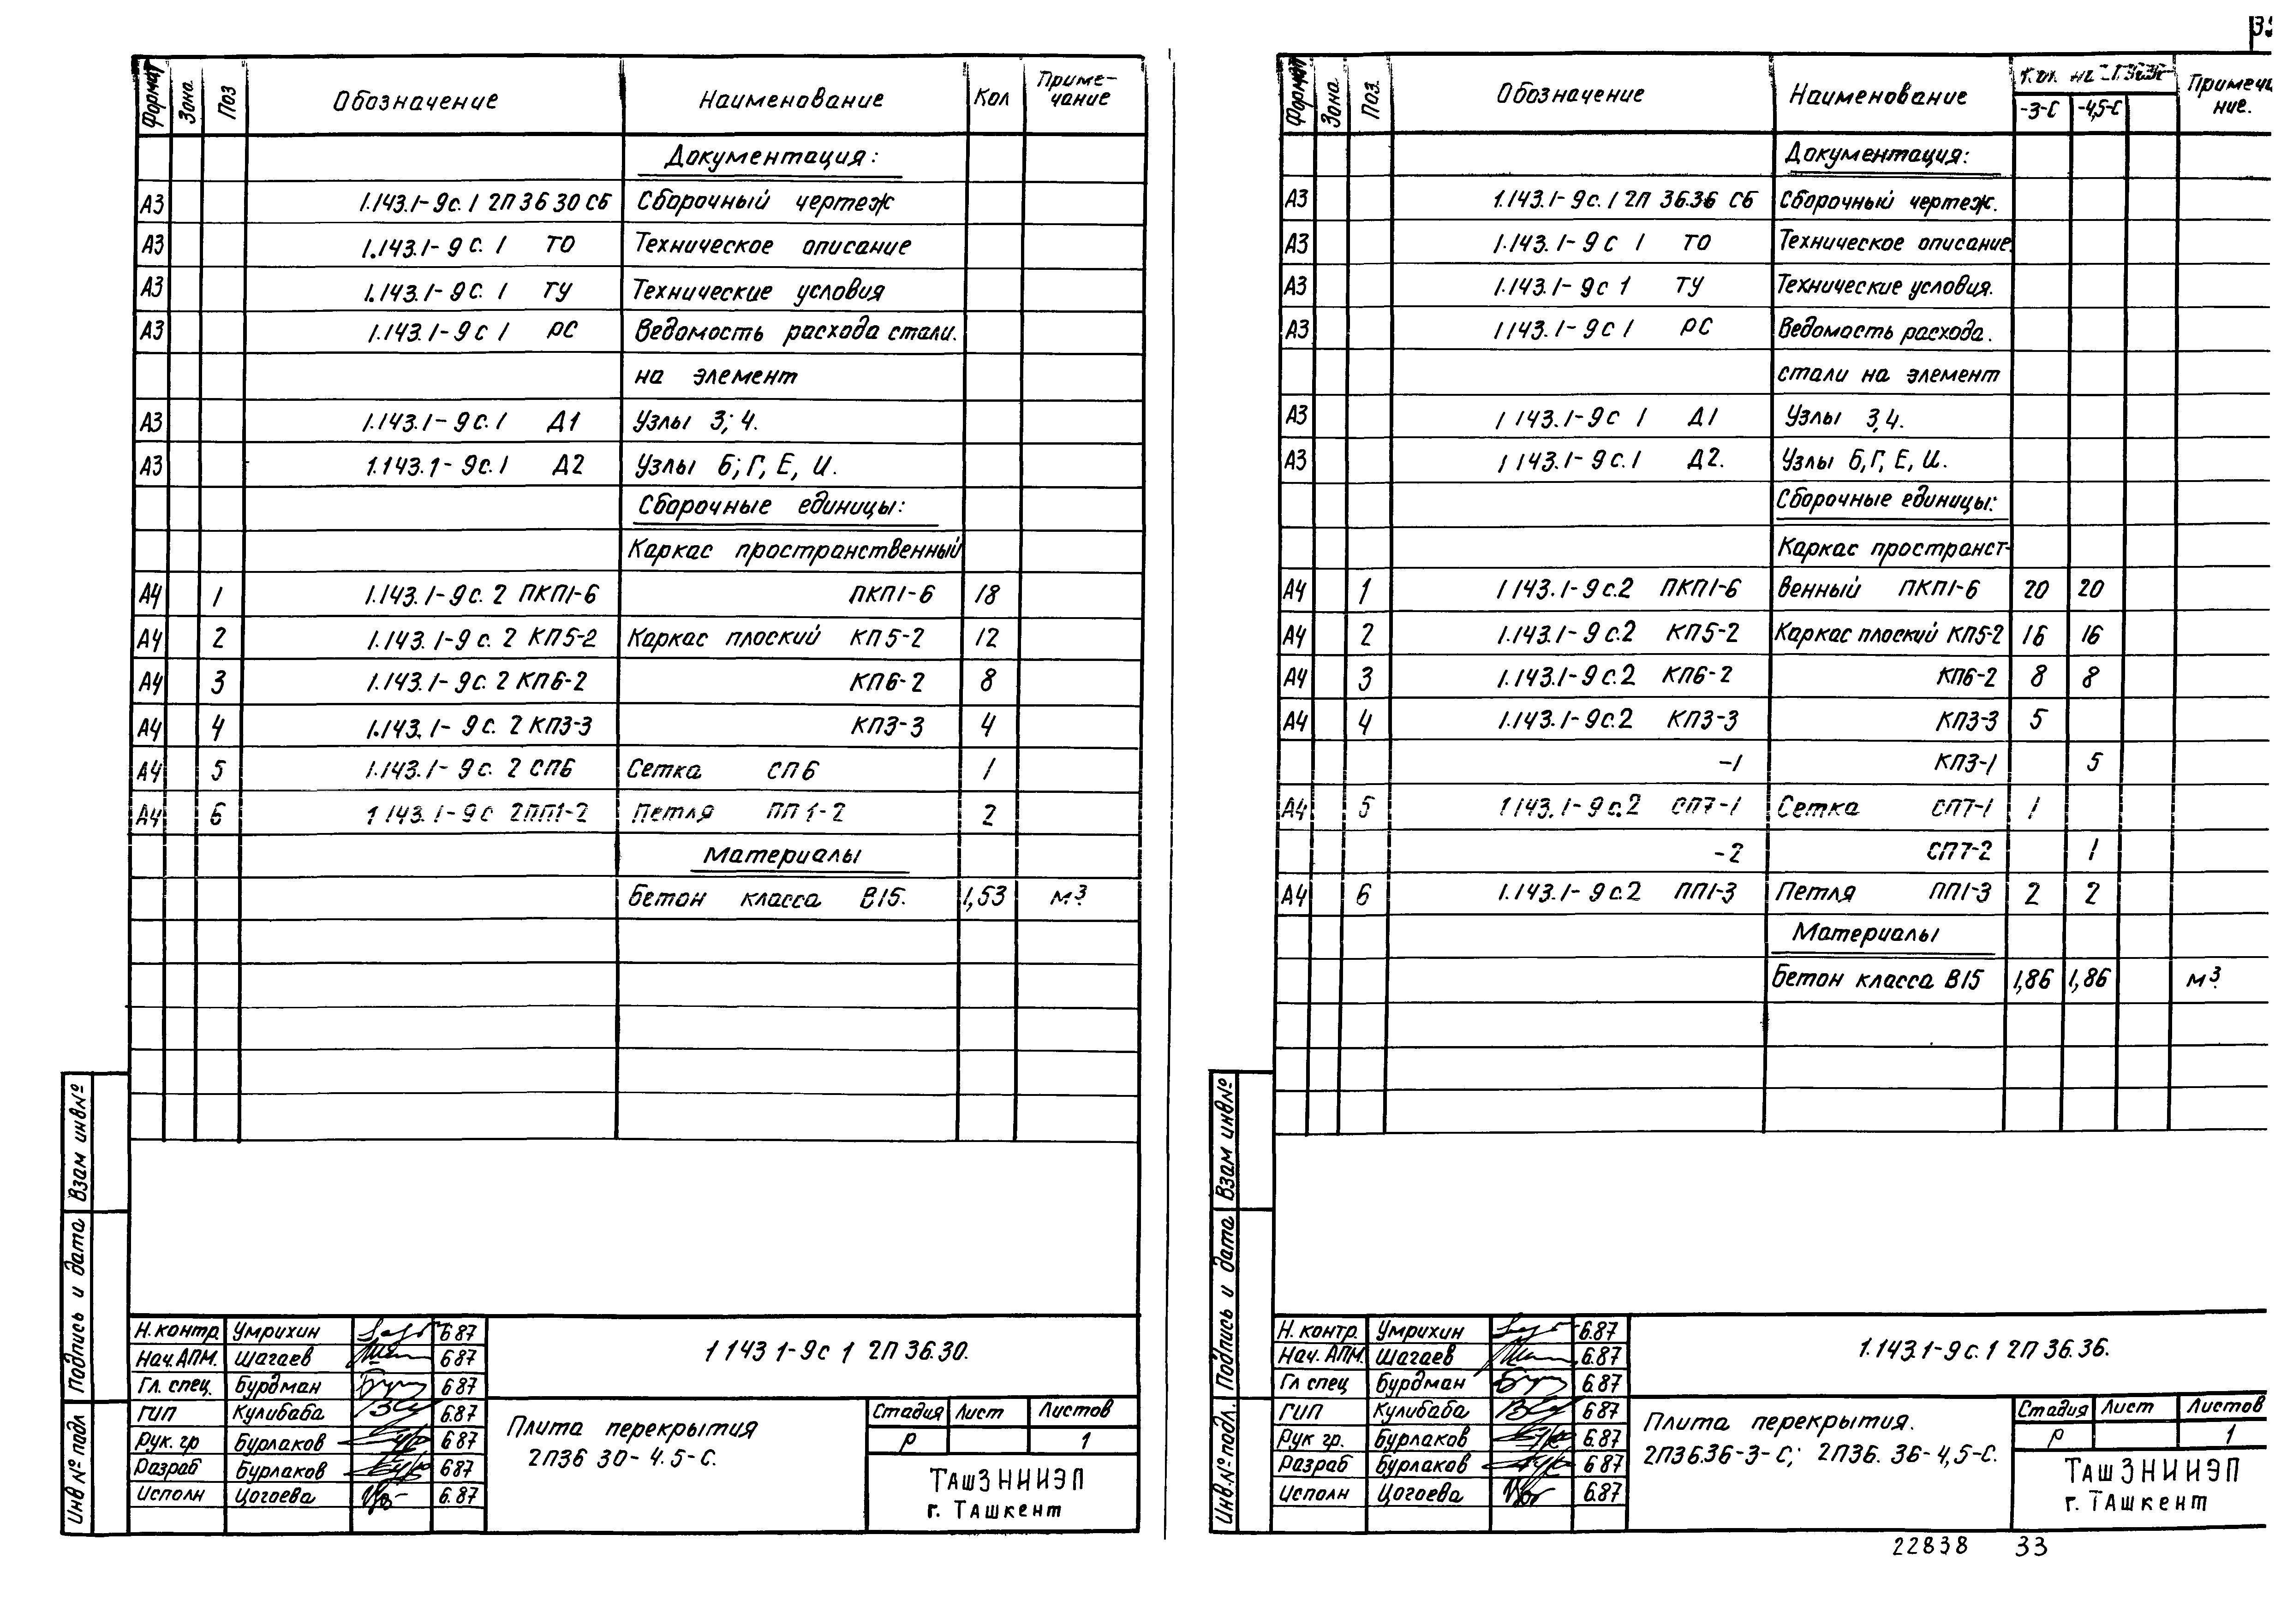 Формат Зона Поз Обозначение Наименование Кол Приме-
чание
Документация:
А3 1.143.1-9с.1 2П3630 СБ Сборочный чертеж
А3 1.143.1-9с.1 ТО Техническое описание
А3 1.143.1-9с.1 ТУ Технические условия
А3 1.143.1-9с 1 РС Ведомость расхода стали.
на элемент
А3 1.143.1-9с.1 Д1 Узлы 3; 4.
А3 1.143.1-9с.1 Д2 Узлы Б; Г, Е, И.
Сборочные единицы:
Каркас пространственный
А4 1 1.143.1-9с.2 ПКП1-6 ПКП1-6 18
А4 2 1.143.1-9с.2 КП5-2 Каркас плоский КП5-2 12
А4 3 1.143.1-9с.2 КП6-2 КП6-2 8
А4 4 1.143.1-9с.2 КП3-3 КП3-3 4
А4 5 1.143.1-9с.2 СП6 Сетка СП6 1
А4 6 1 143.1-9с 2ПП1-2 Петля ПП1-2 2
Материалы
Бетон класса В15. 1,53 м³
Взам инв№
Подпись и дата
Инв № подл
Н.контр. Умрихин 6 87
Нач.АПМ. Шагаев 6 87
Гл. спец. Бурдман 6 87
ГИП Кулибаба 6.87
Рук. гр Бурлаков 6 87
Разраб Бурлаков 6 87
Исполн Цогоева 6.87
1 143 1-9с 1 2П 36.30.
Плита перекрытия
2П36 30-4.5-С.
Стадия Лист Листов
Р 1
ТашЗНИИЭП
г. Ташкент
Формат Зона Поз. Обозначение Наименование Кол. на Примеча
ние.
-3-С -4,5-С
Документация:
А3 1.143.1-9с.1 2П 36.36 СБ Сборочный чертеж.
А3 1.143.1-9с 1 ТО Техническое описание
А3 1.143.1-9с 1 ТУ Технические условия.
А3 1 143.1-9с 1 РС Ведомость расхода.
стали на элемент
А3 1 143.1-9с 1 Д1 Узлы 3,4.
А3 1 143.1-9с.1 Д2. Узлы Б,Г, Е, И.
Сборочные единицы:
Каркас пространст-
А4 1 1 143.1-9с.2 ПКП1-6 венный ПКП1-6 20 20
А4 2 1.143.1-9с.2 КП5-2 Каркас плоский КП5-2 16 16
А4 3 1.143.1-9с.2 КП6-2 КП6-2 8 8
А4 4 1.143.1-9с.2 КП3-3 КП3-3 5
-1 КП3-1 5
А4 5 1 143.1-9с.2 СП7-1 Сетка СП7-1 1
-2 СП7-2 1
А4 6 1.143.1-9с.2 ПП1-3 Петля ПП1-3 2 2
Материалы
Бетон класса В15 1,86 1,86 м³
Взам инв№
Подпись и дата
Инв.№ подл.
Н. контр. Умрихин 6.87
Нач. АПМ. Шагаев 6.87
Гл спец Бурдман 6.87
ГИП Кулибаба 6 87
Рук гр. Бурлаков 6 87
Разраб Бурлаков 6 87
Исполн Цогоева 6.87
1.143.1-9с.1 2П 36.36.
Плита перекрытия.
2П36.36-3-С; 2П36. 36-4,5-С.
Стадия Лист Листов
Р 1
ТашЗНИИЭП
г. Ташкент
22838 33